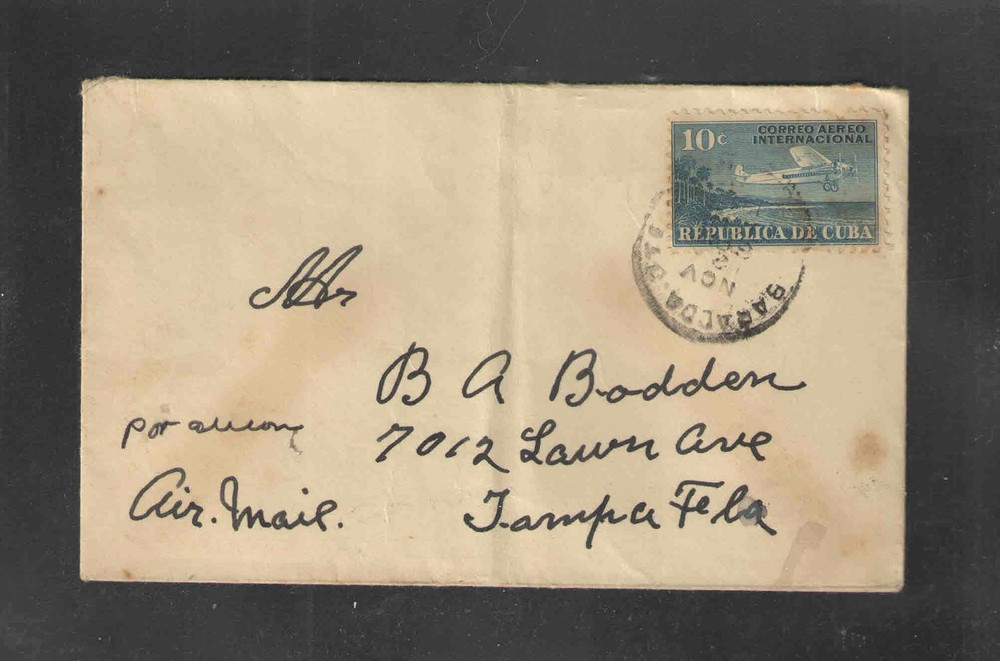 10¢ CORREO AEREO
INTERNACIONAL
REPUBLICA DE CUBA
NOV
Mr
B A Bodden
7012 Lawn Ave
Tampa Fla
por avion
Air. Mail.